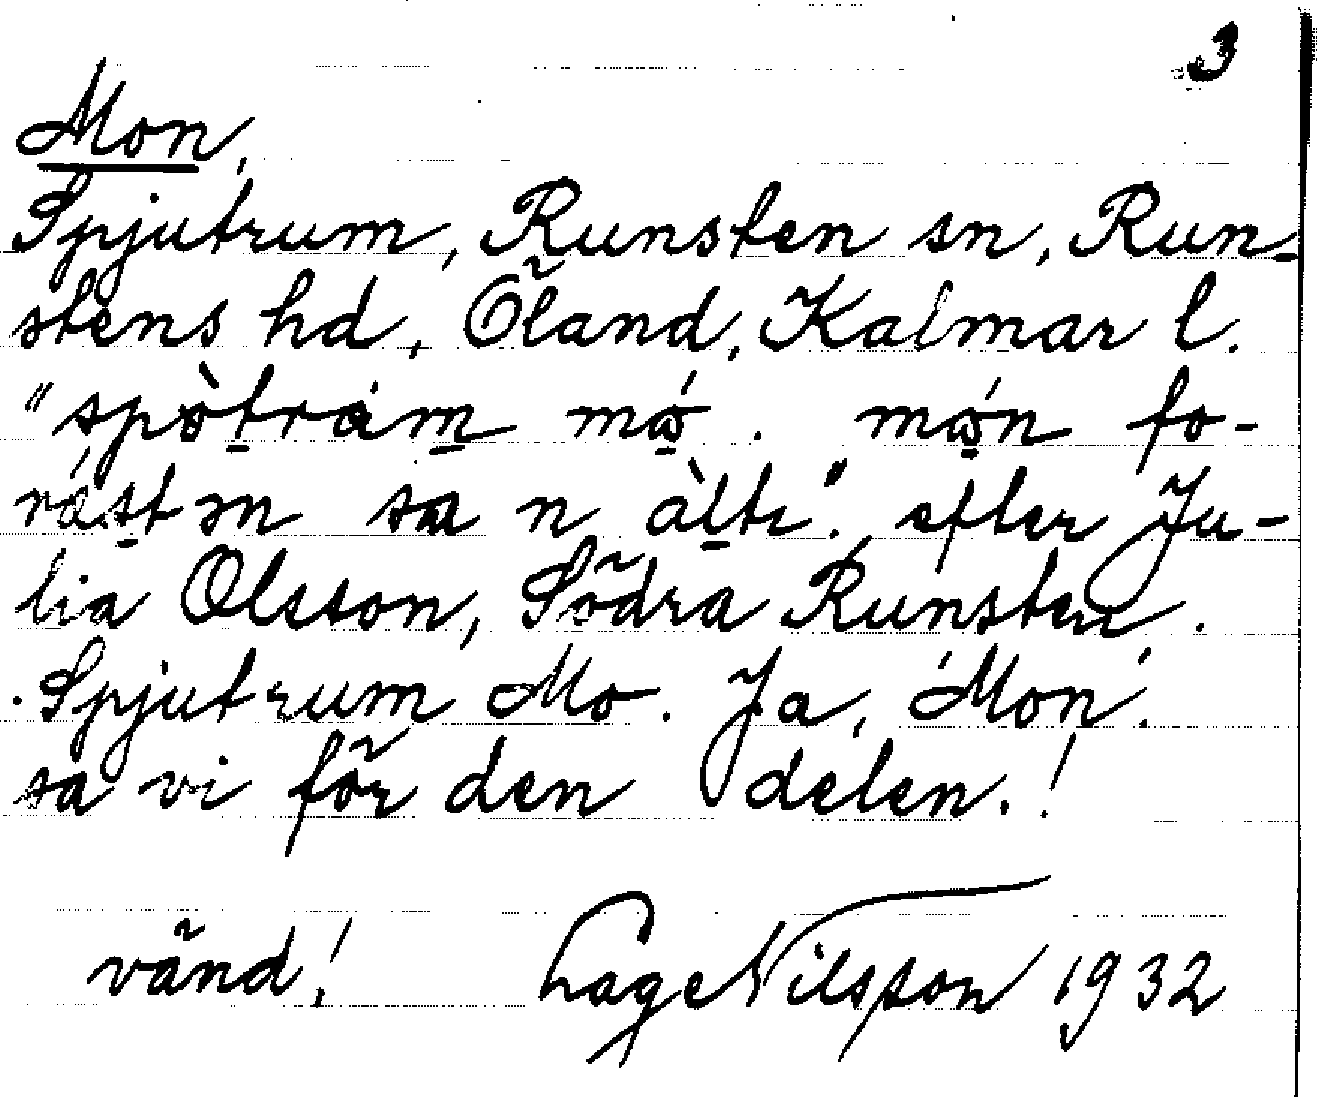 3
Mon,
Spjutrum, Runsten sn, Run-
stens hd, Öland, Kalmar l.
"spòtrám mǻ. mǻn fo-
rástən sa n àltɩ". efter Ju-
lia Olsson, Södra Runsten.
Spjutrum Mo. Ja, 'Mon'.
sa vi för den delen.!
vänd! Lage Nilsson 1932